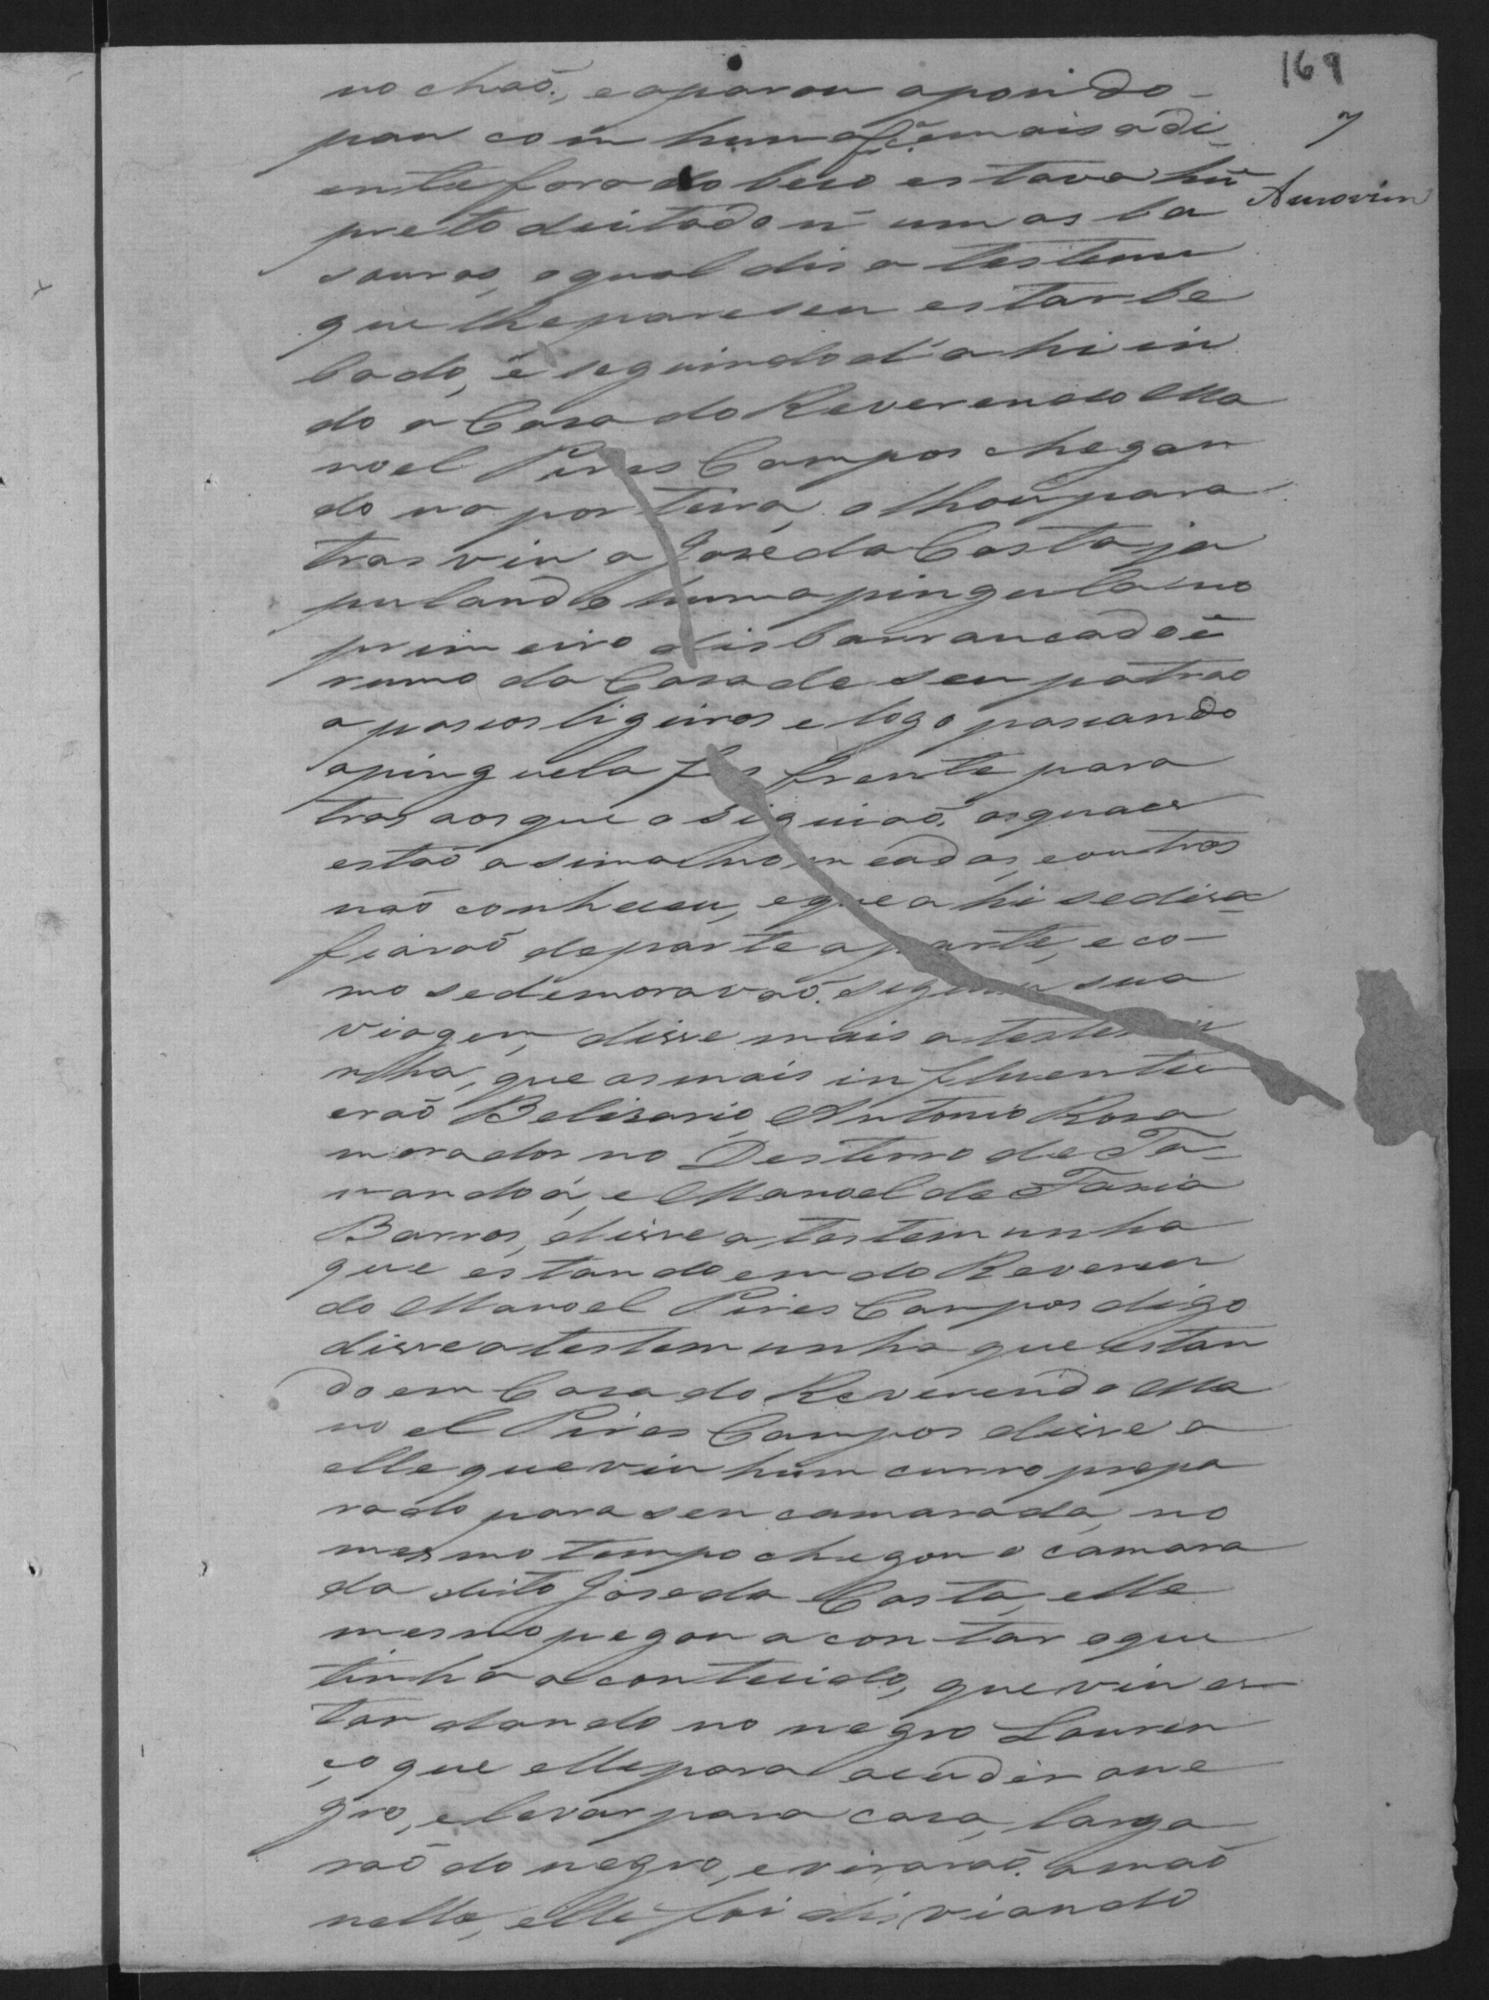 169
7
Amorim
no chaõ, e aparou apon do
pau com huma fé e mais a di
ente fora do beco estava hũ
preto deitado n'umas ba
souras, o qual dis a testemu
que lhe pareseu estar be
bado, e seguindo d'ahi in
do a Casa do Reverendo Ma
noel Pires Campos chegan
do na porteira, olhou para
tras viu a José da Costa ja
pulando huma pinguela no
primeiro disbarrancado e
rumo da Casa de seu patrão
a passos ligeiros e logo passando
a pinguela fes frente para
tras aos que o siguiaõ, os quaes
estaõ asima nomeados, e outros
naõ conheceu, e que ahi se disa
fiaraõ de parte a parte, e co-
mo se demoravaõ. seguiu sua
viagem, disse mais a testemu
nha, que os mais influentes
eraõ Belisario, Antonio Rosa
morador no Desterro de Ta-
mandoá, e Manoel de Faria
Barros, disse a testemunha
que estando em do Reveren
do Manoel Pires Campos digo
disse a testemunha que estan
do em Casa do Reverendo Ma
noel Pires Campos disse a
elle que viu hum curro prepa
rado para seu camarada, no
mesmo tempo chegou o camara
da dito José da Costa, elle
mesmo pegou a contar o que
tinha acontecido, que viu es
tar dando no negro Louren
ço que elle para acudir a o ne
gro, e levar para casa, larga
raõ do negro, e viraraõ. a maõ
nelle, elle foi disviando